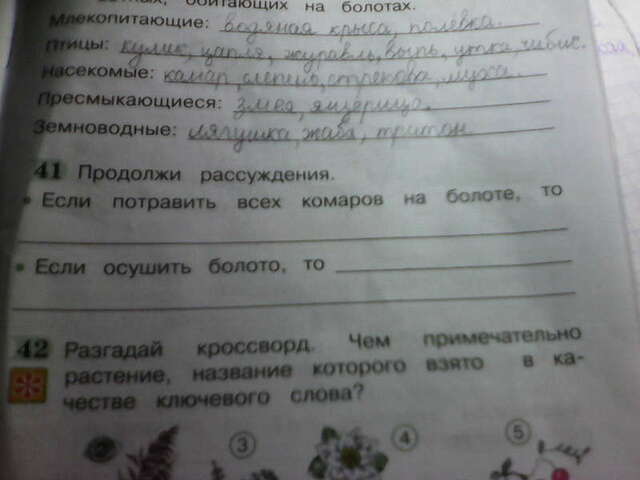 ных, обитающих на болотах.
Млекопитающие: водяная крыса, полёвка.
Птицы: кулик, цапля, журавль, выпь, утка, чибис.
Насекомые: камар, слепни, стрекоза, муха.
Пресмыкающиеся: змея, ящерица.
Земноводные: лягушка, жаба, тритон
41 Продолжи рассуждения.
• Если потравить всех комаров на болоте, то
• Если осушить болото, то
42 Разгадай кроссворд. Чем примечательно
растение, название которого взято в ка-
честве ключевого слова?
2 3 4 5